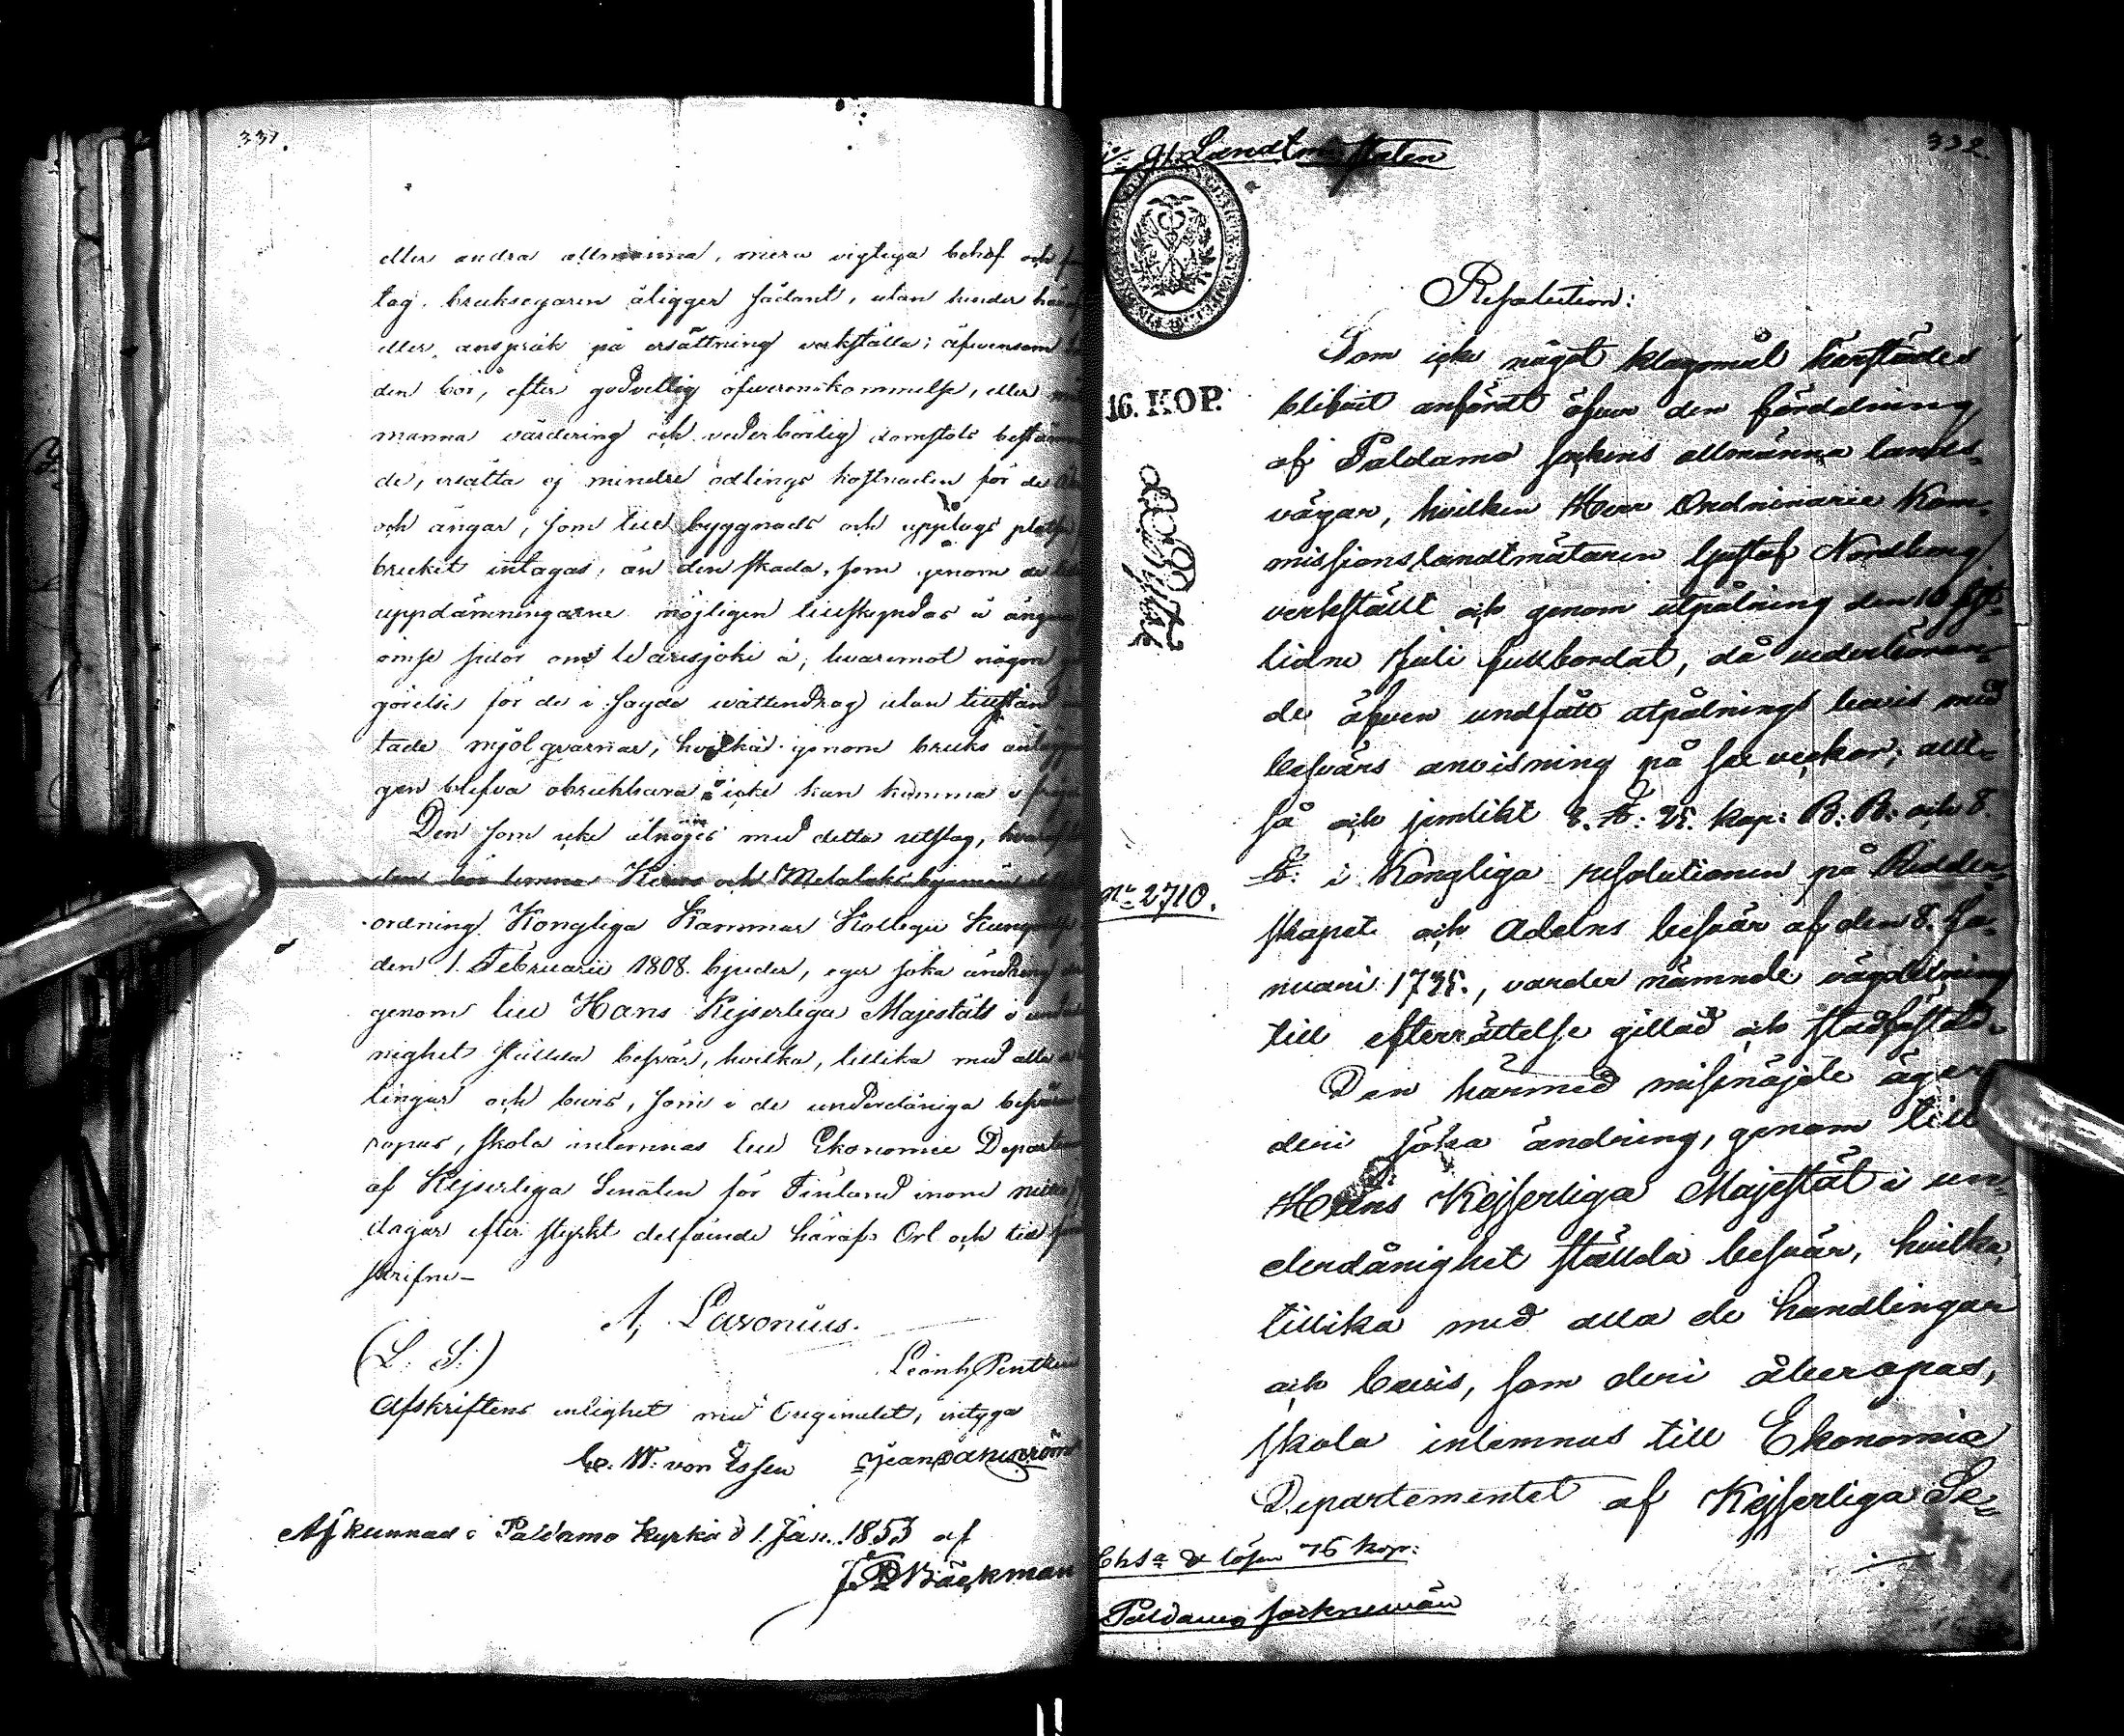 331.
eller andra allmänna, mera vigtiga behof och
tag. bruksegaren åligger sådant, utan hinder
eller anspråk på ersättning verkställa; äfvensom
den bör, efter godvillig öfverenskommelse, eller
manna värdering och vederbörlig domstols bestämm
de, ersätta ej mindre odlings kostnaden för de
och ängar, som till byggnads och upplags plats
bruket intagas, än den skada, som genom de
uppdämningarne möjligen tillskyndas å ängar
ömse sidor om Varisjoki å; hvaremot någon
görelse för de i sagde vattendrag utan tillstånd
tade mjölqvarnar, hvilka genom bruks anlägg
gen blefva obrukbara icke kan komma i fråga
Den som icke åtnöjes med detta utslag,
den bör lemna och Melalaks byamän
ordning Kongliga Kammar Kollegii Kungörelse
den 1. Februarii 1808. bjuder, eger söka ändring
genom till Hans Kejserliga Majestäts i
nighet stälda besvär, hvilka, tillika med alla
lingar och bevis, som i de underdåniga besvären
ropas, skola inlemnas till Ekonomie Departem
af Kejserliga Senaten för Finland inom
dagar efter styrkt delfående häraf. Ort och tid
skrifne-
A, Lavonius.
(L. S.)
Leonh, Pent
Afskriftens enlighet med Originalet, intyga
C. W. von Essen Jean
Afkunnad i Paldamo Kyrka d 1. Jan. 1853 af
Bäckman
332.
91. Landtm. staten
16. KOP.
No 2710.
Resolution:
Som icke något klagomål härstädes
blifvit anfördt öfver den fördelning
af Paldamo sockens allmänna lands-
vägar, hvilken Herr Ordninarie Kom-
missionslandtmätaren Gustaf Nordberg
verkställt och genom utpålning den 10 sist-
lidne Juli fullbordat, då vederböran-
de äfven undfått utpålnings bevis med
besvärs anvisning på sex veckor; allt-
så och jemlikt 8. §: 25. kap: B. B. och 8.
§: i Kongliga resolutionen på Ridder-
skapets och Adelns besvär af den 8. Ja-
nuari 1735., varder nämnde vägdelning
till efterrättelse gillad och stadfästad.
Den härmed missnöjde äger
deri söka ändring, genom till
Hans Kejserliga Majestät i un-
derdånighet ställda besvär, hvilka,
tillika med alla de handlingar
och bevis, som deri åberopas,
skola inlemnas till Ekonomie
Departementet af Kejserliga Se-
& lösen 76 kop:
Paldamo sockneman